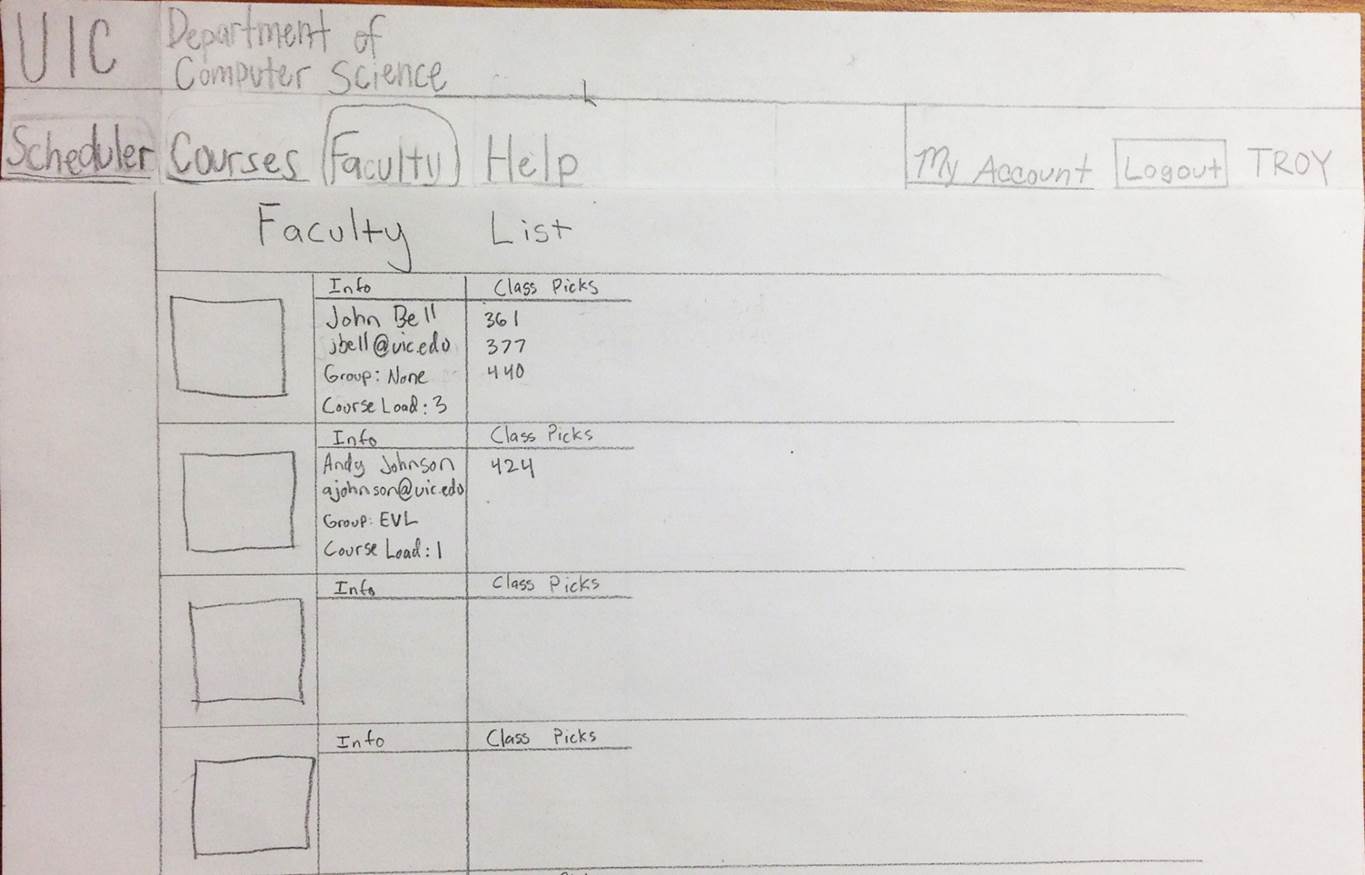 UIC
Department of
Computer Science
Scheduler Courses Faculty Help
My Account Logout TROY
Faculty List
Info Class Picks
John Bell 361
jbell@uic.edu 377
Group: None 440
Course Load: 3
Info Class Picks
Andy Johnson 424
ajohnson@uic.edu
Group: EVL
Course Load: 1
Info Class Picks
Info Class Picks